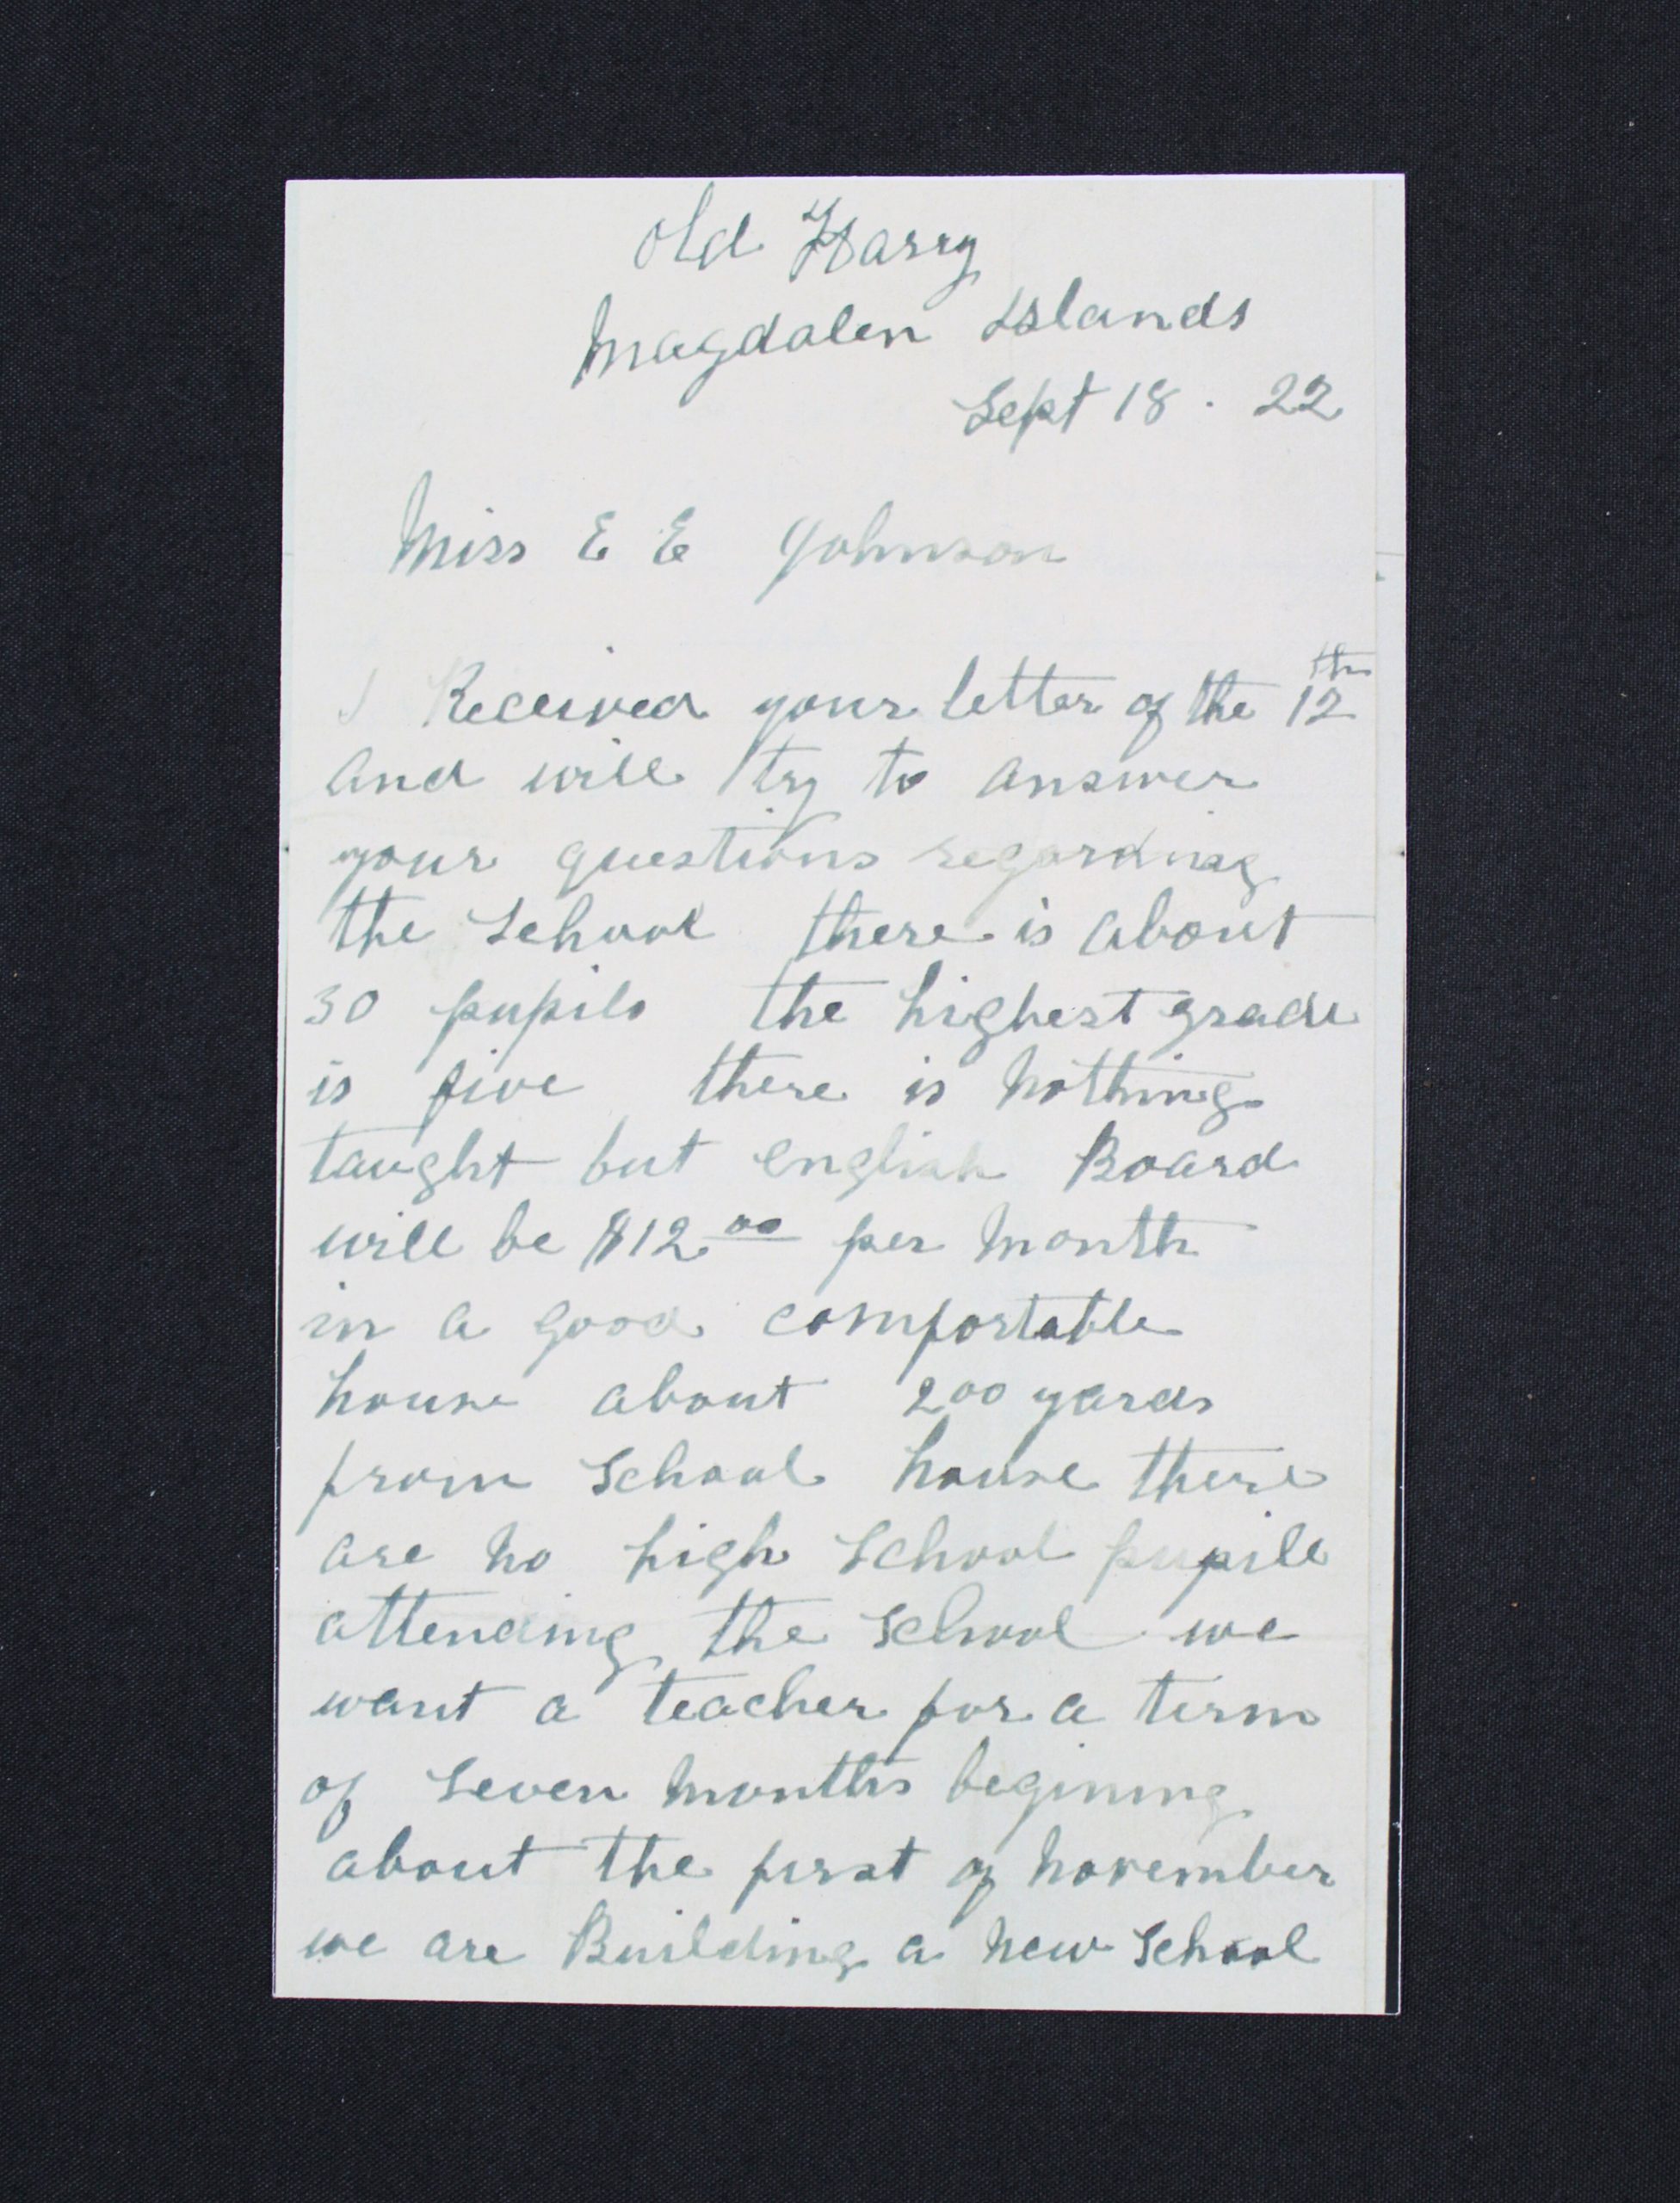 Old Harry
Magdalen Islands
Sept 18 . 22
Miss E E Johnson
I Received your letter of the 12th
and will try to answer
your questions regarding
the School there is about
30 pupils the highest grade
is five there is nothing
taught but english Board
will be $12.00 per month
in a good comfortable
house about 200 yards
from School house there
are no high School pupils
attending the School we
want a teacher for a term
of Seven months begining
about the first of november
we are Building a new School